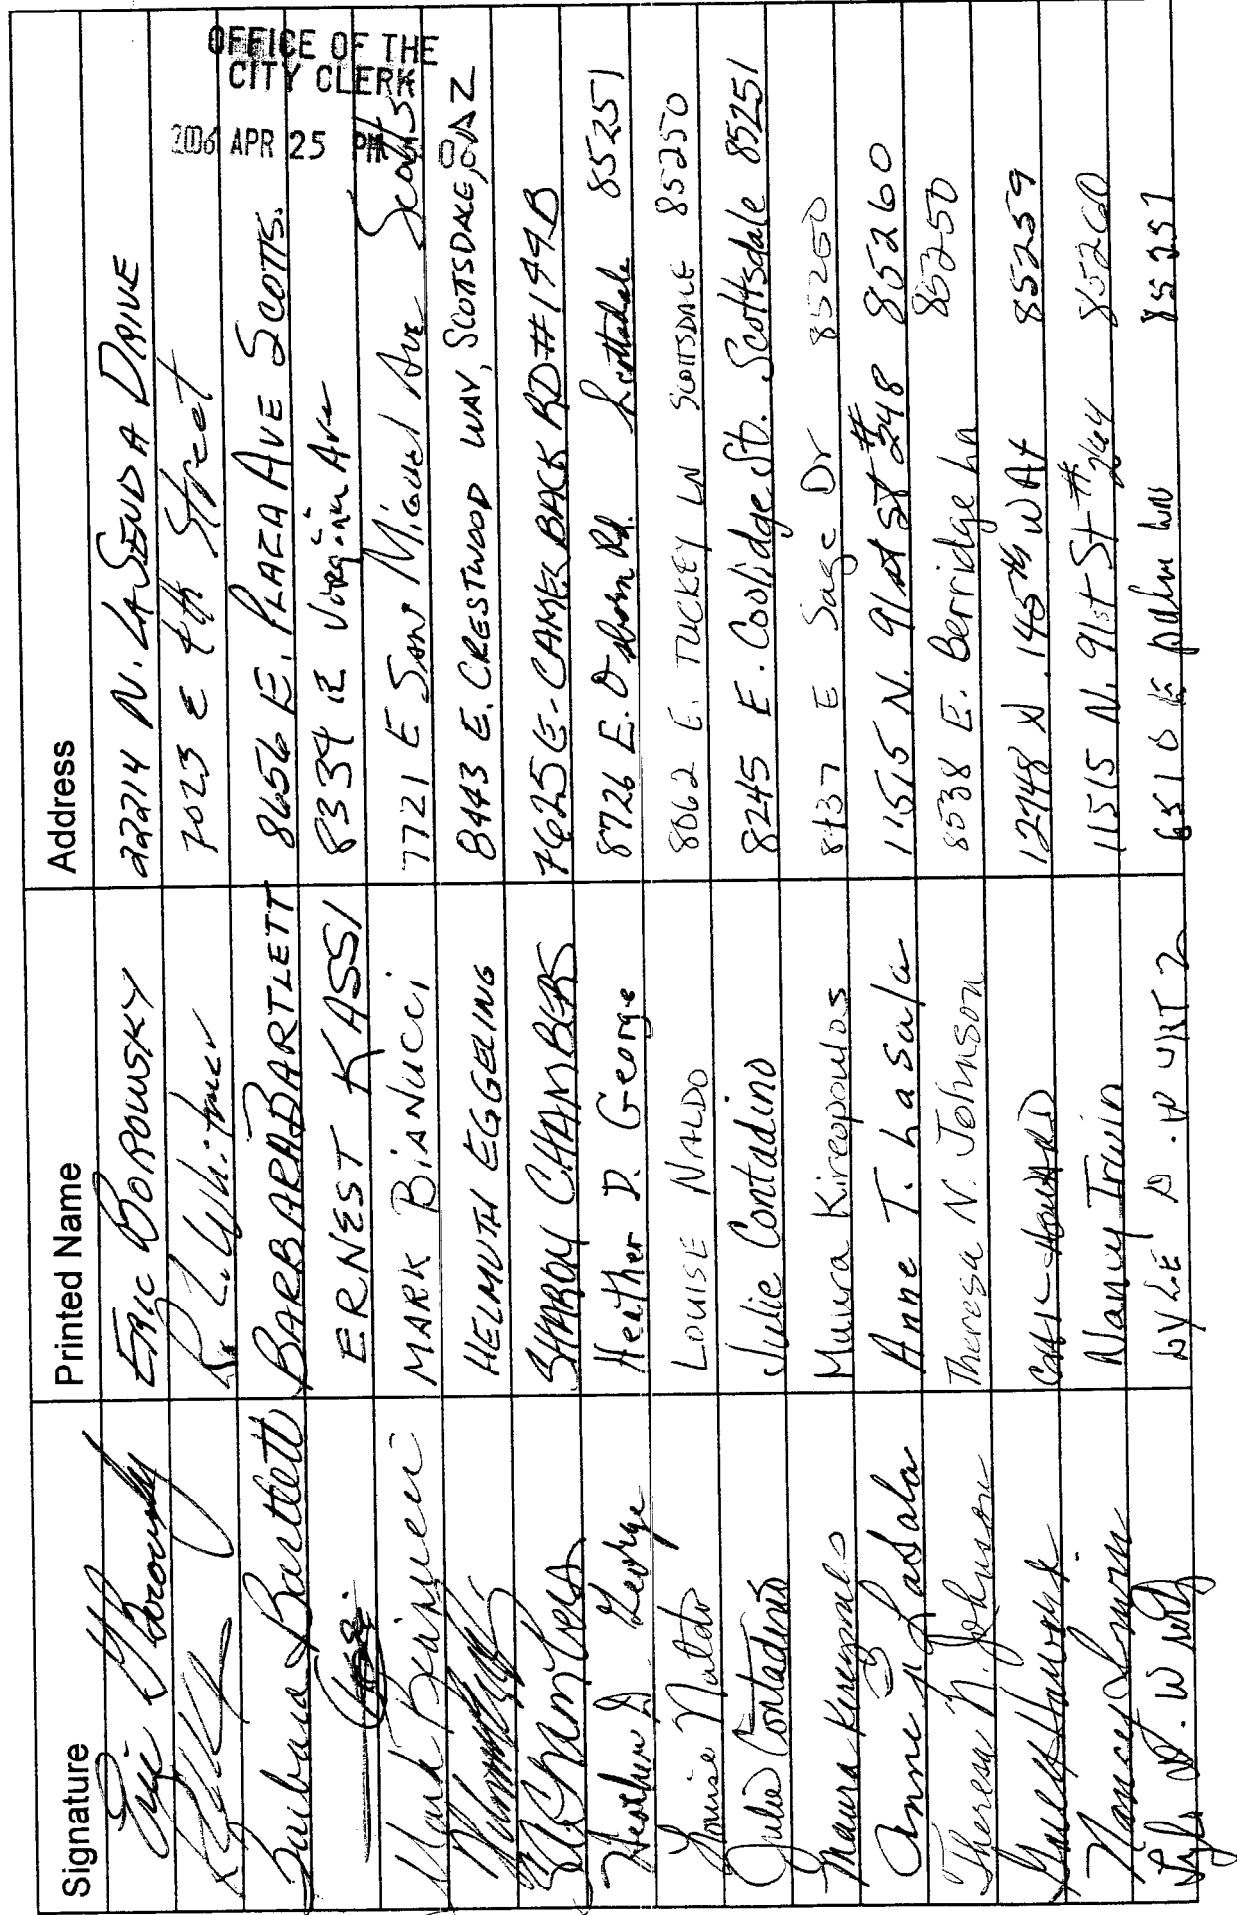 OFFICE OF THE
CITY CLERK
2006 APR 25 PM 06
Signature Printed Name Address
Eric Borowsky ERIC BOROWSKY 22214 N. LA SENDA DRIVE
R. Whitmer 7023 E Street
Barbara Bartlett BARBARA BARTLETT 8656 E. PLAZA AVE SCOTTS.
ERNEST KASSI 8334 E Virginia Ave
Mark Bianucci MARK BiANUCCi 7721 E SAN MIGUEL AVE Scotts.
HELMUTH EGGELING 8443 E. CRESTWOOD WAY, SCOTTSDALE, AZ
S Chambers SHARON CHAMBERS 7625 E. CAMELBACK RD #144B
Heather D. George Heather D. George 8726 E. Osborn Rd. Scottsdale 85251
Louise Naldo LOUISE NALDO 8062 E. TUCKEY LN SCOTTSDALE 85250
Julie Contadino Julie Contadino 8245 E. Coolidge St. Scottsdale 85251
Maura Kireopoulos Maura Kireopoulos 8437 E Sage Dr 85250
Anne T. LaSala Anne T. LaSala 11515 N. 91st St #248 85260
Theresa N. Johnson Theresa N. Johnson 8538 E. Berridge Ln 85250
HOWARD 12748 N. 145th WAY 85259
Nancy Irwin Nancy Irwin 11515 N. 91st St #264 85260
Lyle D. Wurtz LYLE D. WURTZ 6510 E palm LN 85257